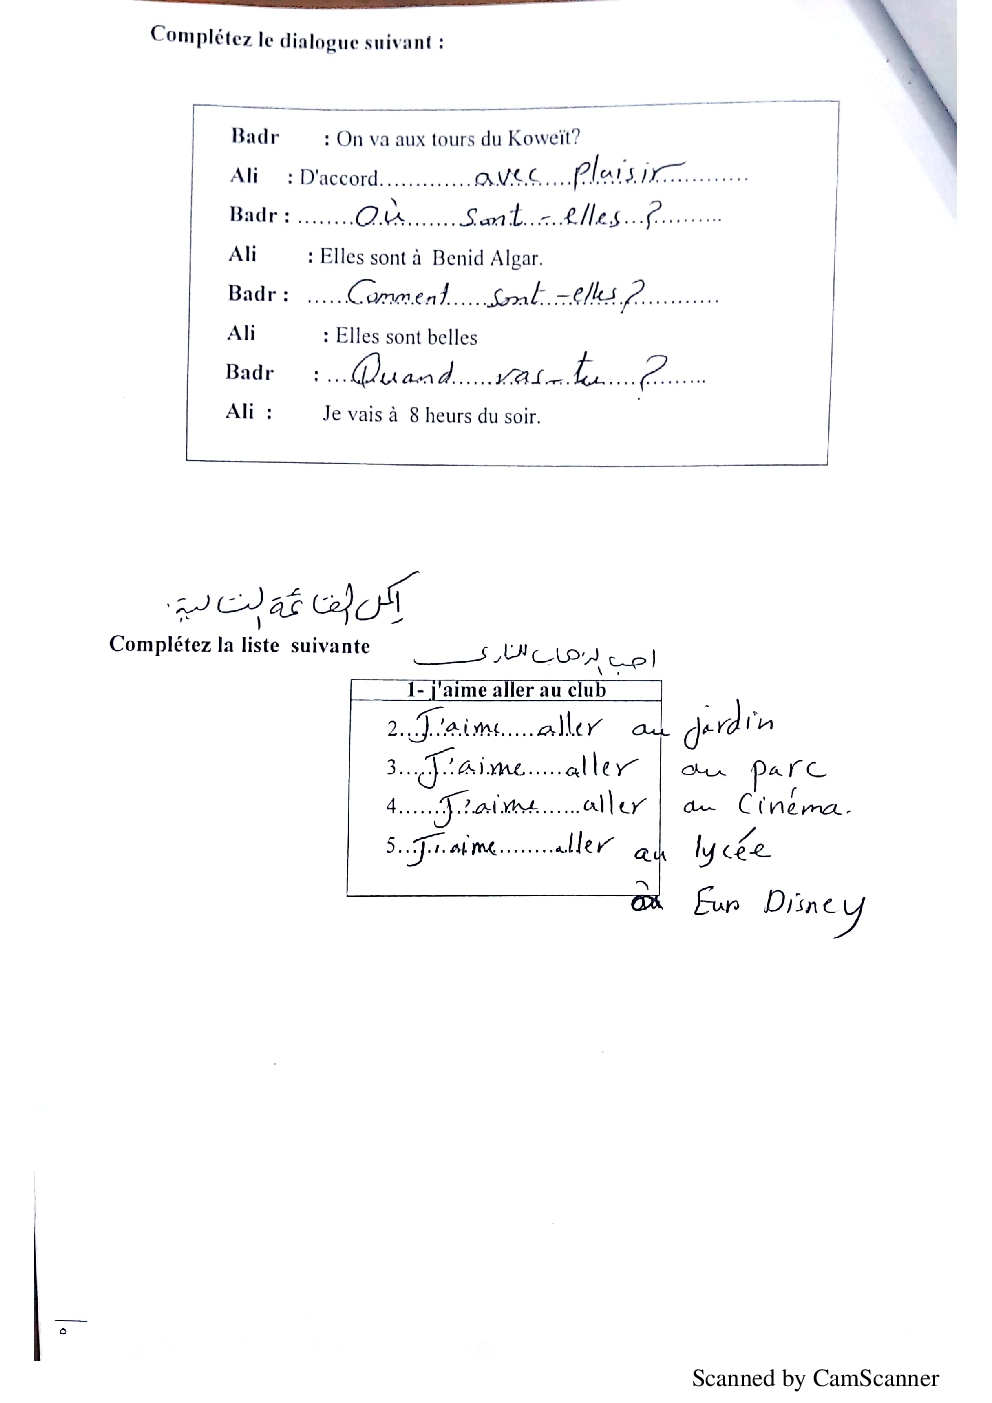 Complétez le dialogue suivant :
Badr : On va aux tours du Koweït?
Ali : D'accord............avec....plaisir............
Badr : .......Où.......sont-elles..?.........
Ali : Elles sont à Benid Algar.
Badr : .....Comment.....sont-elles?...........
Ali : Elles sont belles
Badr : ...Quand......vas-tu....?........
Ali : Je vais à 8 heurs du soir.
أكمل القائمة التالية:
Complétez la liste suivante
احب الذهاب للنادي
1- j'aime aller au club
2...J'aime.....aller au jardin
3...J'aime.....aller au parc
4......J'aime......aller au Cinéma.
5...J'aime........aller au lycée
à Euro Disney
٥
Scanned by CamScanner